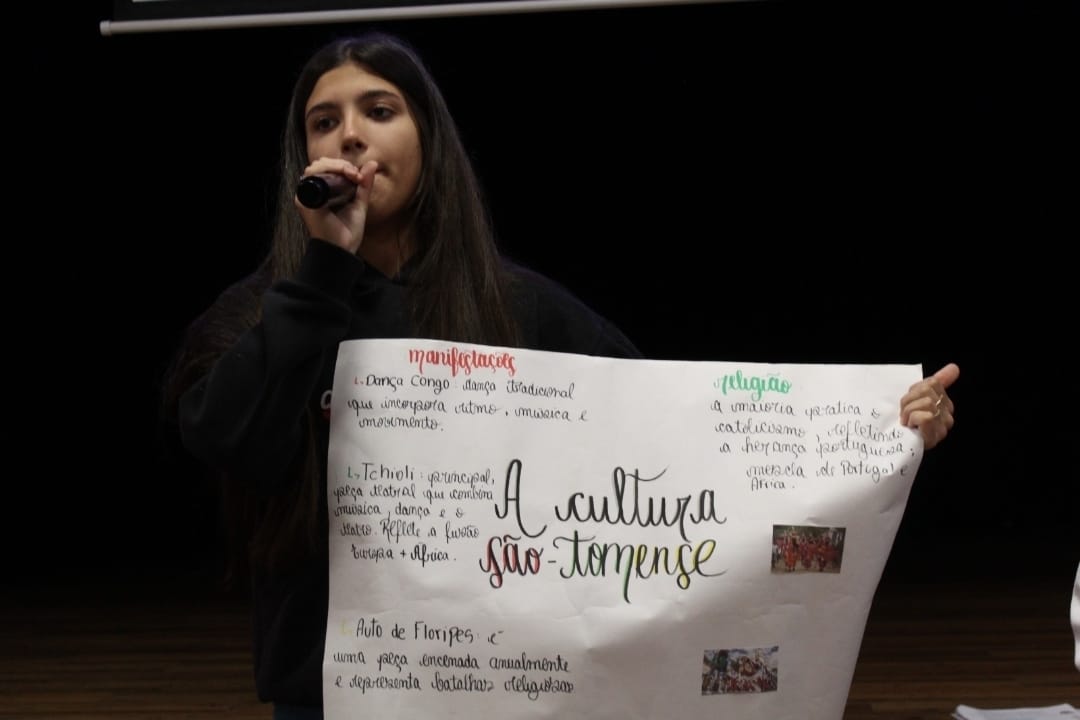 manifestações
Dança Congo: dança tradicional
que incorpora ritmo, música e
movimento.
Tchioli: principal,
peça teatral que combina
música, dança e o
teatro. Reflete a fusão
Europa + África.
Auto de Floripes: é
uma peça encenada anualmente
e representa batalhas religiosas
A cultura
são-tomense
religião
a maioria pratica o
catolicismo, refletindo
a herança portuguesa;
mescla de Portugal e
África.